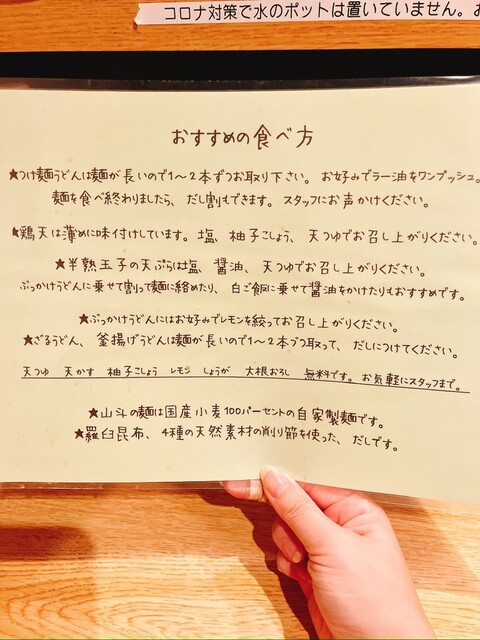 コロナ対策で水のポットは置いていません。お
おすすめの食べ方
★つけ麺うどんは麺が長いので1〜2本ずつお取り下さい。お好みでラー油をワンプッシュ。
麺を食べ終わりましたら、だし割もできます。スタッフにお声かけください。
★鶏天は薄めに味付けしています。塩、柚子こしょう、天つゆでお召し上がりください。
★半熟玉子の天ぷらは塩、醤油、天つゆでお召し上がりください。
ぶっかけうどんに乗せて割って麺に絡めたり、白ご飯に乗せて醤油をかけたりもおすすめです。
★ぶっかけうどんにはお好みでレモンを絞ってお召し上がりください。
★ざるうどん、釜揚げうどんは麺が長いので1〜2本づつ取って、だしにつけてください。
天つゆ 天かす 柚子こしょう レモン しょうが 大根おろし 無料です。お気軽にスタッフまで。
★山斗の麺は国産小麦100パーセントの自家製麺です。
★羅臼昆布、4種の天然素材の削り節を使った、だしです。